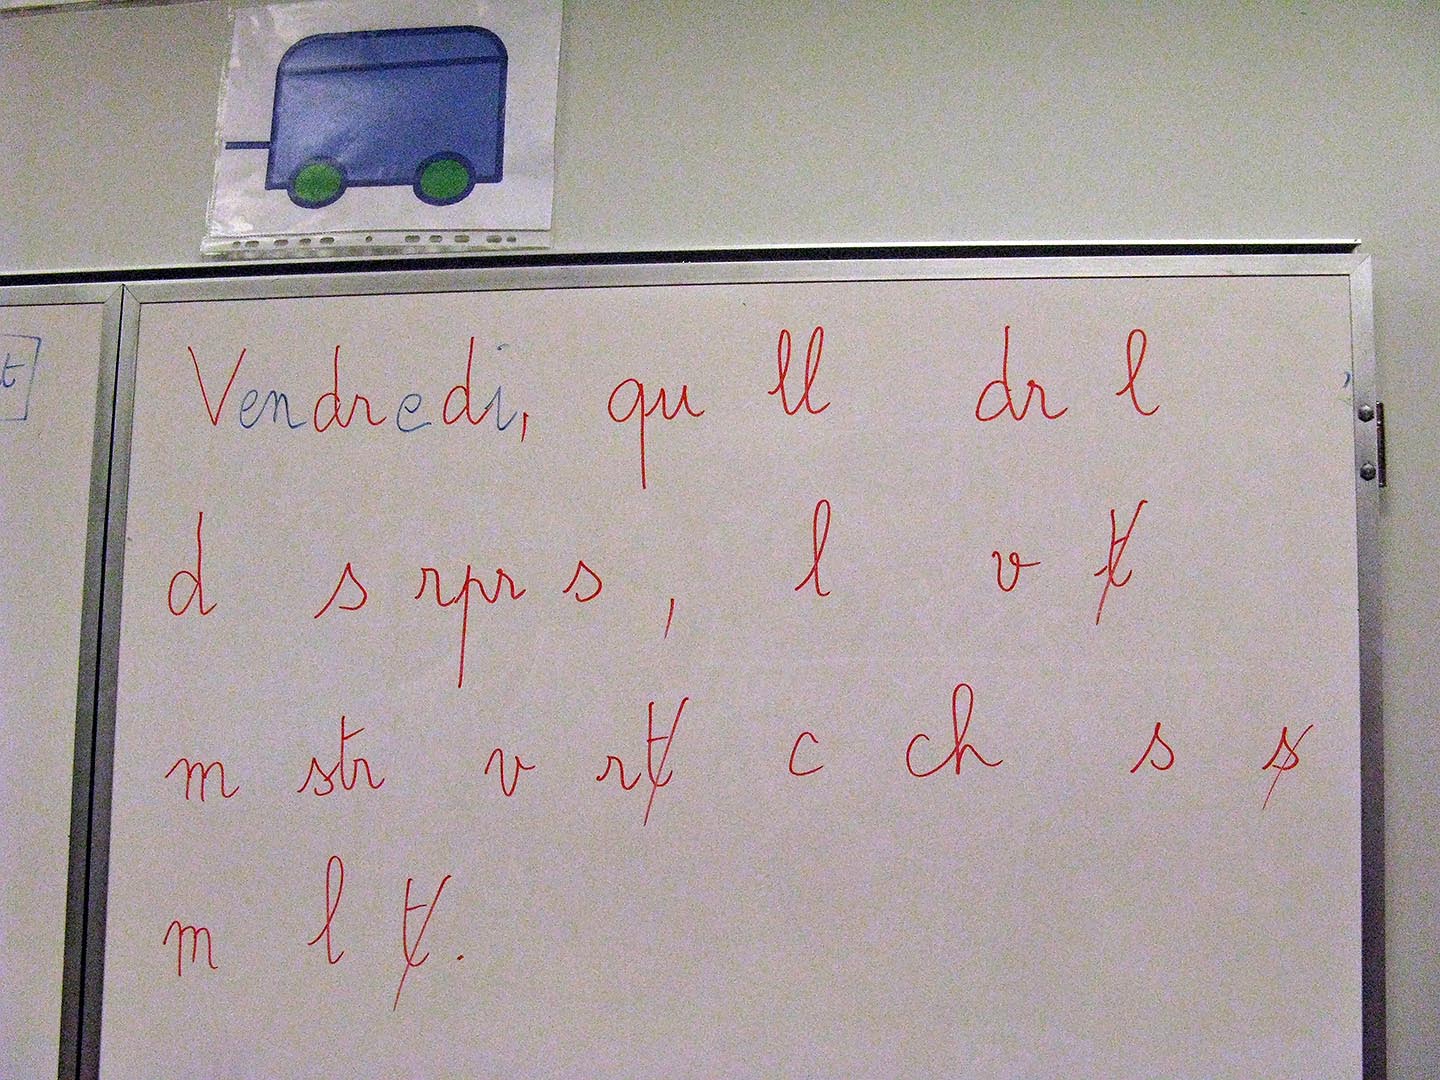 t
Vendredi, qu ll dr l
d s rpr s , l v t
m str v rt c ch s s
m l t.